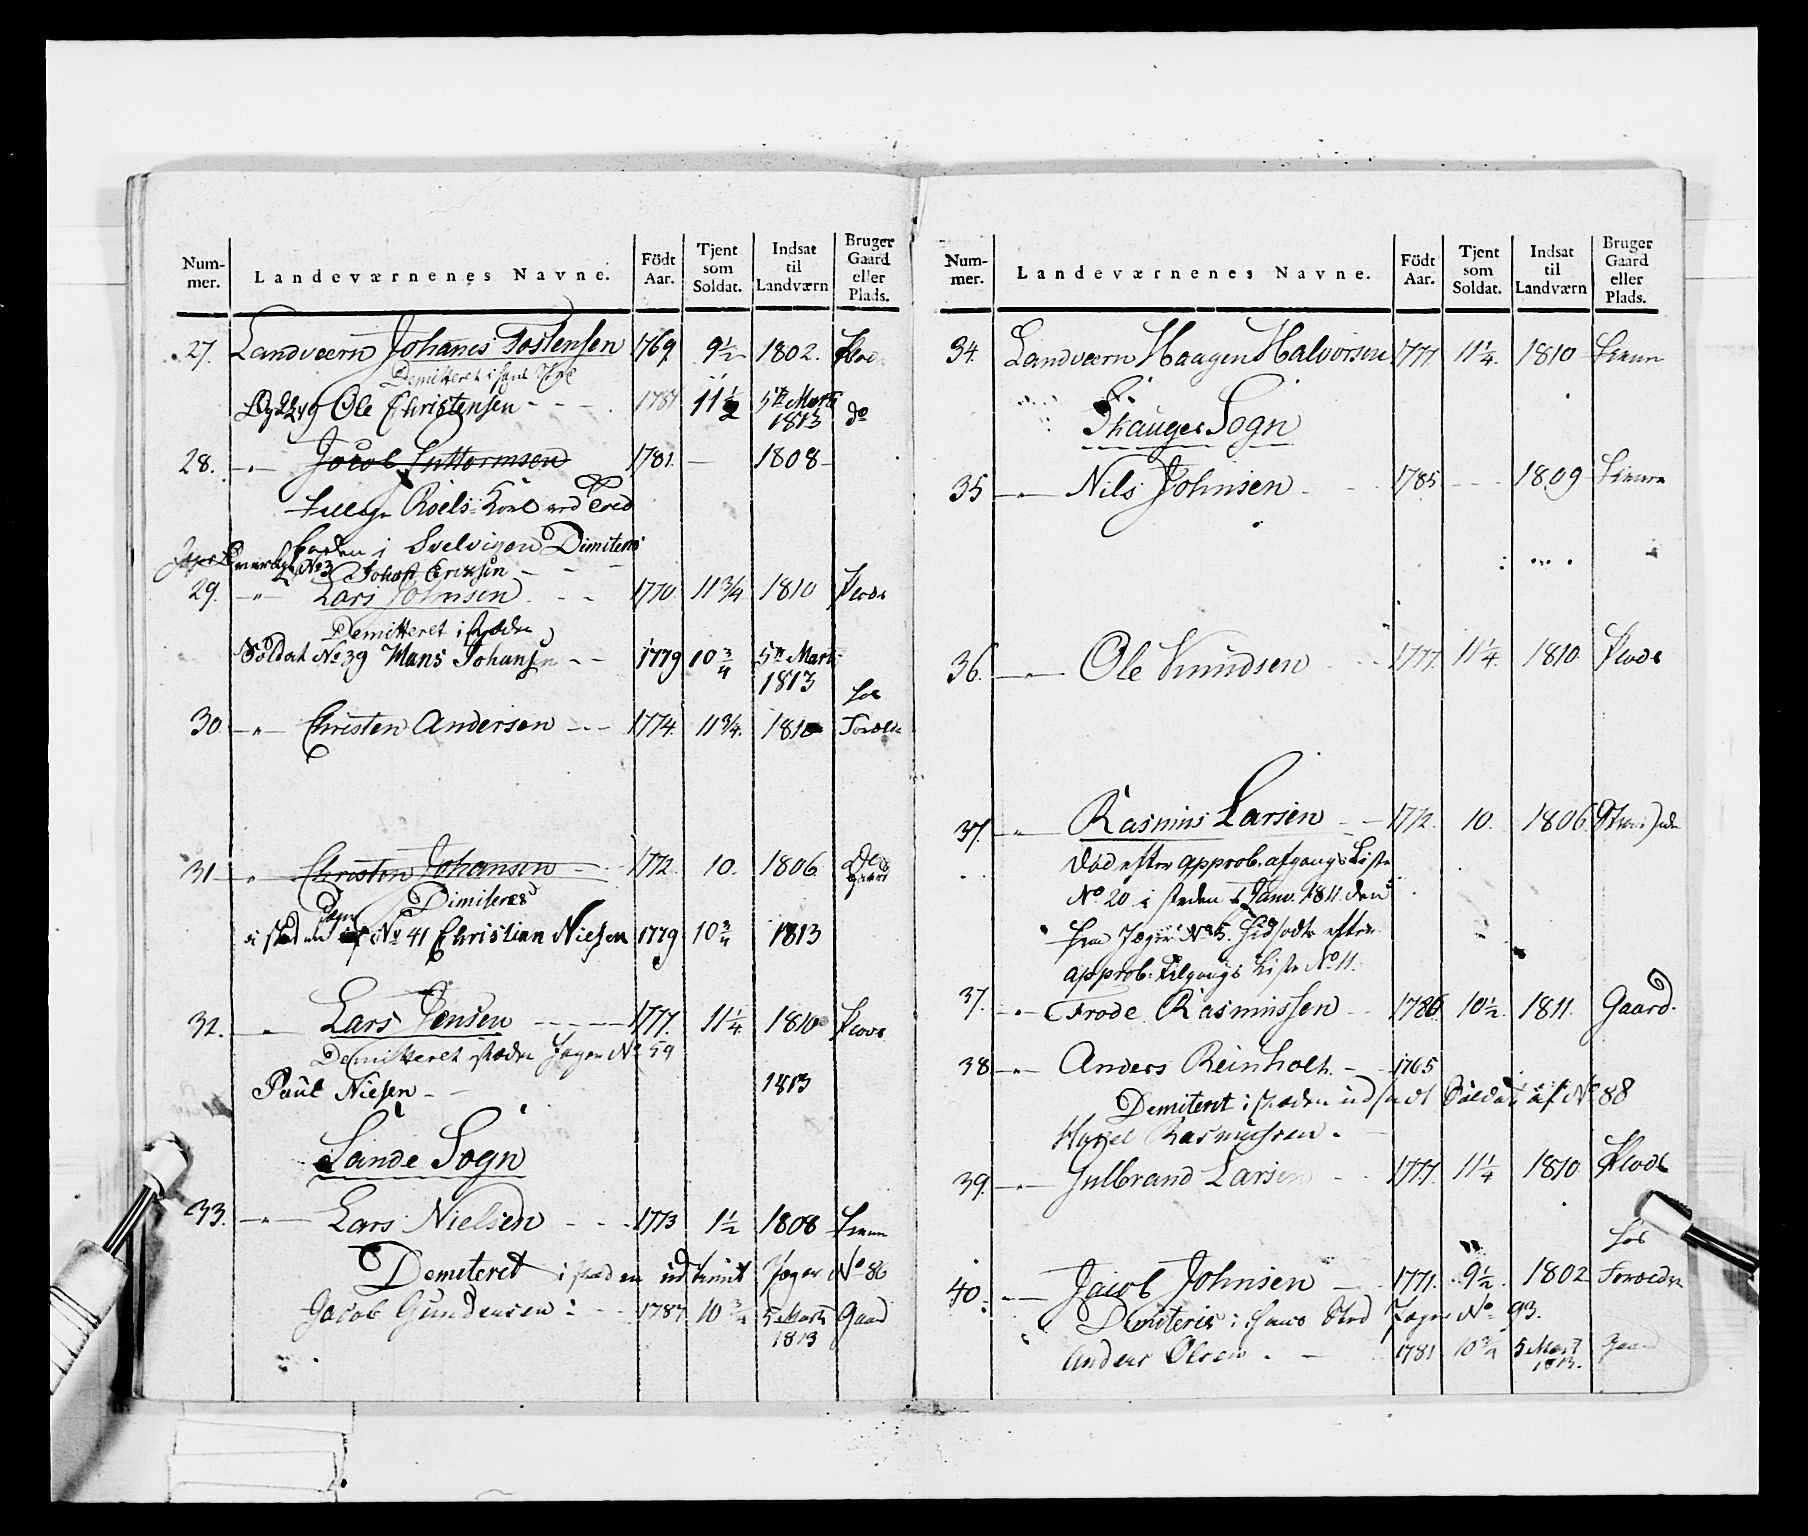 Num-
mer.
Landeværnenes Navne.
Födt
Aar.
Tjent
som
Soldat.
Indsat
til
Landværn
Bruger
Gaard
eller
Plads.
27. Landværn Johanes Tostensen 1769 9½ 1802.
Demitteret i
Ole Christensen 1787 11½ 5te Marti 1813 do
28. -„- Jacob Guttormsen 1781. 1808
ved
i Svelvigen Dimiteres
No 3 Johan Erixsen
29. -„- Lars Johnsen 1770 11¾ 1810 Plads
Demitteret i stæden
Soldat No 39 Hans Johansen 1779 10¾ 5te Marti 1813
30 -„- Christen Andersen 1774. 11¾. 1810 hos Foræld
31 „ Christen Johansen 1772. 10. 1806
Dimiteres
i steden No 41 Christian Nielsen 1779 10¾ 1813
32. „ Lars Jensen 1777. 11¼ 1810 Plads
Demitteret i stæden Jæger No 59
Paul Nielsen 1813
Sande Sogn
33. -„- Lars Nielsen 1773 1½ 1808
Demiteret i stæden Jæger No 86
Jacob Gundersen 1787 10¾ 5 Marti 1813 Gaard
Num-
mer.
Landeværnenes Navne.
Födt
Aar.
Tjent
som
Soldat.
Indsat
til
Landværn
Bruger
Gaard
eller
Plads.
34. Landværn Haagen Halvorsen 1777 11¼. 1810
Skauger Sogn
35 -„- Nils Johnsen 1785 1809
36. -„- Ole Knudsen 1777. 11¼. 1810. Plads
37. -„- Rasmus Larsen 1772. 10. 1806
Död efter approb. afgangs Liste
No 20 i steden Janv. 1811 den
fra Jæger No 5. efter
approb. Tilgangs Liste No 11.
37. -„- Frode Rasmussen 1786 10½ 1811. Gaard.
38 -„- Anders Reinholt. 1765
Demiteret i stæden Soldat af No 88
Rasmussen.
39. -„- Gulbrand Larsen 1777. 11¼ 1810 Plads
40. Jacob Johnsen 1771. 9½ 1802 hos Forældre
Demiteris i hans Sted Jæger No 93.
Anders Olsen. 1781 10¾ 5 Marti 1813. Gaard